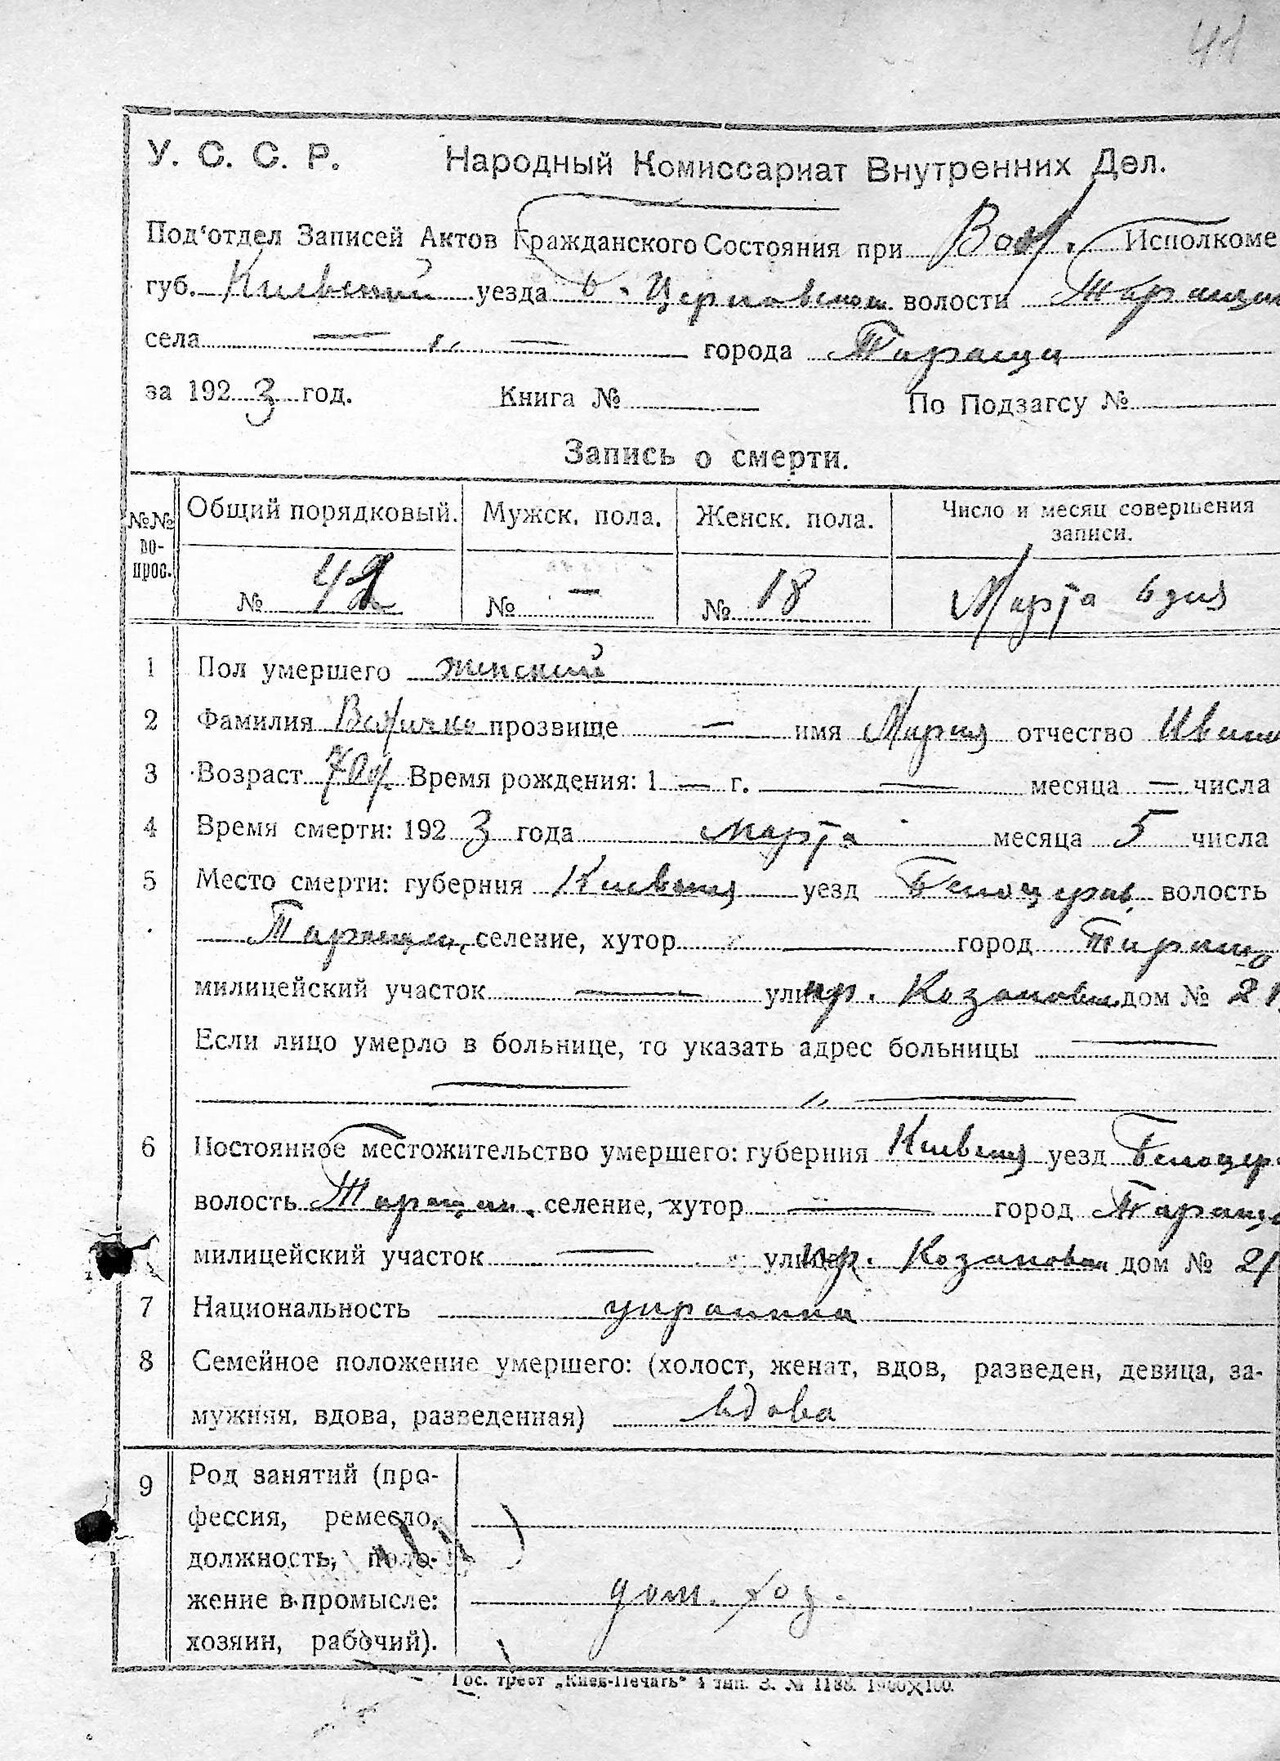 41
У. С. С. Р. Народный Комиссариат Внутренних Дел.
Под'отдел Записей Актов Гражданского Состояния при Вол. Исполкоме
губ. Киевской уезда б. Церковском волости Таращан
села — „ — города Таращи
за 1923 год. Книга № По Подзагсу №
Запись о смерти.
№№ вопрос. Общий порядковый. Мужск. пола. Женск. пола. Число и месяц совершения записи.
№ 42 № — № 18 Марта 6 дня
1 Пол умершего женский
2 Фамилия прозвище — имя Мария отчество Иван
3 Возраст 70 л. Время рождения: 1 — г. — месяца — числа
4 Время смерти: 1923 года марта месяца 5 числа
5 Место смерти: губерния Киевская уезд Белоцерков. волость
Таращан. селение, хутор — город Тараща
милицейский участок — улица пр. дом № 21
Если лицо умерло в больнице, то указать адрес больницы —
— „ —
6 Постоянное местожительство умершего: губерния Киевская уезд Белоцер
волость Таращан. селение, хутор — город Тараща
милицейский участок — улица пр. дом № 21
7 Национальность украинка
8 Семейное положение умершего: (холост, женат, вдов, разведен, девица, за-
мужняя, вдова, разведенная) вдова
9 Род занятий (про-
фессия, ремесло,
должность, поло-
жение в промысле: дом. хоз.
хозяин, рабочий).
Гос. трест „Киев-Печать" 4 тип. З. № 1188.